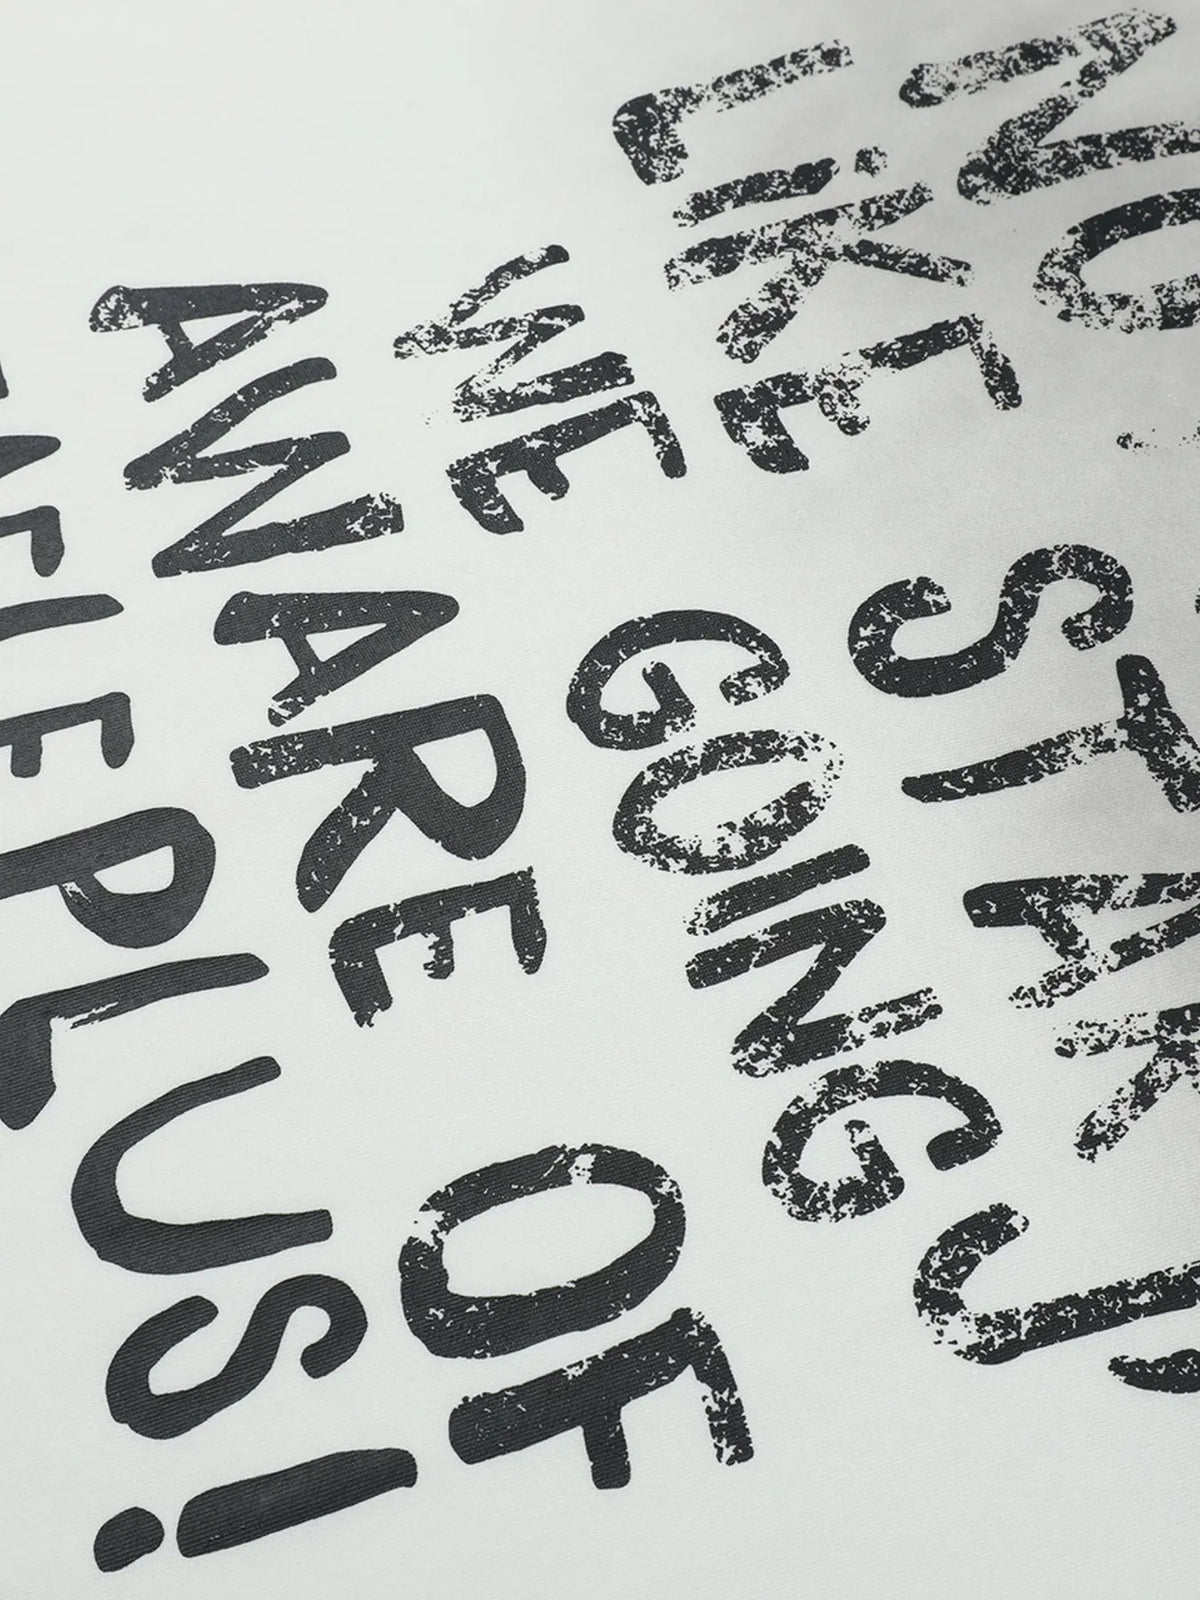 LiKE STAR
WE GOING J
AWARE OF
PLUS!